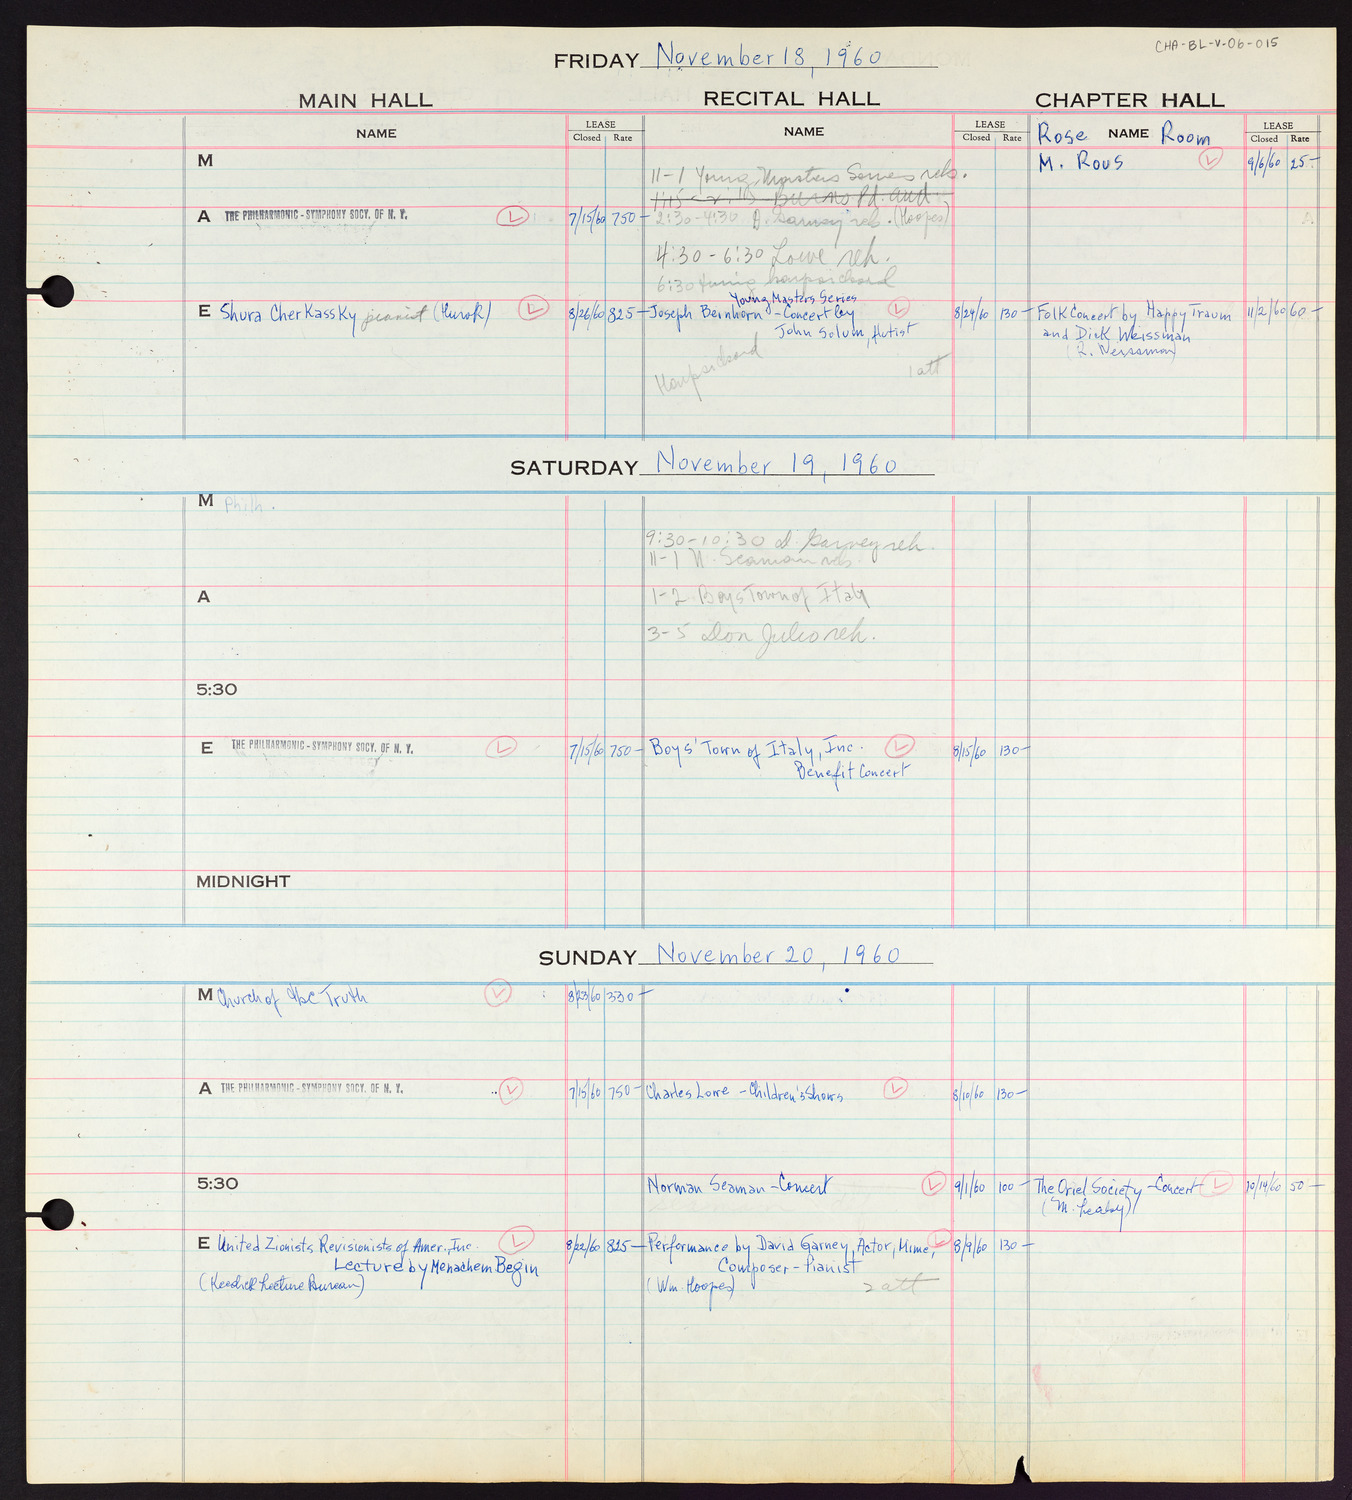 CHA-BL-V-06-015
FRIDAY November 18, 1960
MAIN HALL RECITAL HALL CHAPTER HALL
NAME LEASE Closed Rate NAME LEASE Closed Rate Rose NAME Room LEASE Closed Rate
M
M. Rous L 9/6/60 25-
11-1 Young Masters Series reh.
A THE PHILHARMONIC-SYMPHONY SOCY. OF N. Y. L 7/15/60 750-
2:30-4:30 D. Garney reh. (Hoopes)
4:30-6:30 Lowe reh.
6:30 tuning harpsichord
E Shura Cherkassky pianist (Hurok) L 8/26/60 825-
Young Masters Series
Joseph Beinhorn - Concert by L 8/24/60 130-
John Solum, flutist
Harpsichord
1 att
Folk Concert by Happy Traum 11/2/60 60-
and Dick Weissman
SATURDAY November 19, 1960
M Philh.
9:30-10:30 d. Garney reh.
11-1 N. Seaman reh.
A
1-2 Boys Town of Italy
3-5 Don Julio reh.
5:30
E THE PHILHARMONIC-SYMPHONY SOCY. OF N. Y. L 7/15/60 750-
Boys' Town of Italy, Inc. L 8/15/60 130-
Benefit Concert
MIDNIGHT
SUNDAY November 20, 1960
M Church of the Truth L 8/23/60 330-
A THE PHILHARMONIC-SYMPHONY SOCY. OF N. Y. L 7/15/60 750-
Charles Lowe - Children's Shows L 8/10/60 130-
5:30
Norman Seaman - Concert L 9/1/60 100-
The Oriel Society - Concert L 10/14/60 50-
(M. Leahy)
E United Zionists Revisionists of Amer., Inc. L 8/22/60 825-
Lecture by Menachem Begin
Lecture Bureau)
Performance by David Garney, Actor, Mime, L 8/9/60 130-
Composer-Pianist
(Wm. Hoopes) 2 att